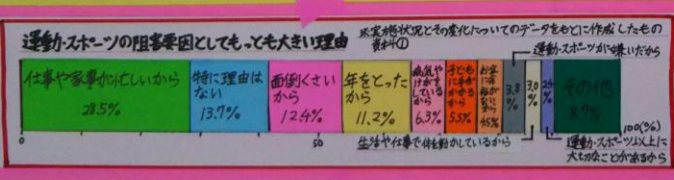 運動・スポーツの阻害要因としてもっとも大きい理由
※実施状況とその変化についてのデータをもとに作成したもの
資料①
運動・スポーツが嫌いだから
仕事や家事が忙しいから
28.5%
特に理由は
ない
13.7%
面倒くさい
から
12.4%
年をとった
から
11.2%
病気や
けがを
しているから
6.3%
子どもに
手が
かかる
から
5.5%
お金に
余裕が
ないから
4.5%
3.8%
3.0%
2.4%
その他
8.7%
0
50
100(%)
生活や仕事で体を動かしているから
運動・スポーツ以上に
大切なことがあるから